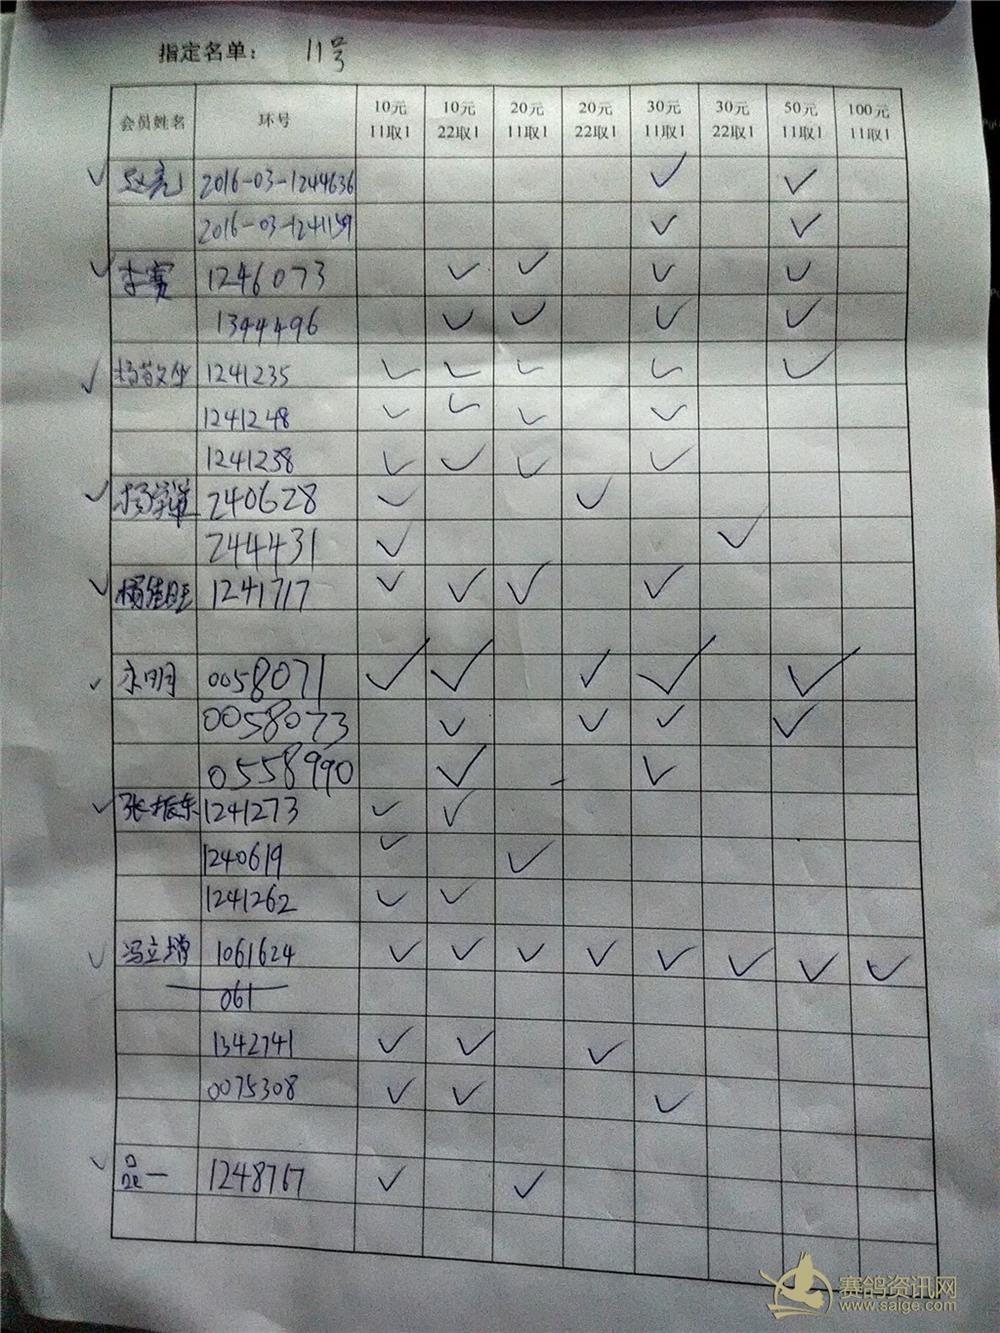 指定名单： 11号
会员姓名 环号 10元 11取1 10元 22取1 20元 11取1 20元 22取1 30元 11取1 30元 22取1 50元 11取1 100元 11取1
✓ 赵亮 2016-03-1244636 ✓ ✓
2016-03-1241159 ✓ ✓
✓ 李赛 1246073 ✓ ✓ ✓ ✓
1344496 ✓ ✓ ✓ ✓
✓ 1241235 ✓ ✓ ✓ ✓ ✓
1241248 ✓ ✓ ✓ ✓
1241238 ✓ ✓ ✓ ✓
✓ 240628 ✓ ✓
244431 ✓ ✓
✓ 1241717 ✓ ✓ ✓ ✓
✓ 0058071 ✓ ✓ ✓ ✓ ✓
0058073 ✓ ✓ ✓ ✓
0558990 ✓ ✓
✓ 张振东 1241273 ✓ ✓
1240619 ✓ ✓
1241262 ✓ ✓
✓ 冯立增 1061624 ✓ ✓ ✓ ✓ ✓ ✓ ✓ ✓
061
1342741 ✓ ✓ ✓
0075308 ✓ ✓ ✓
✓ 品一 1248767 ✓ ✓
赛鸽资讯网
www.saige.com